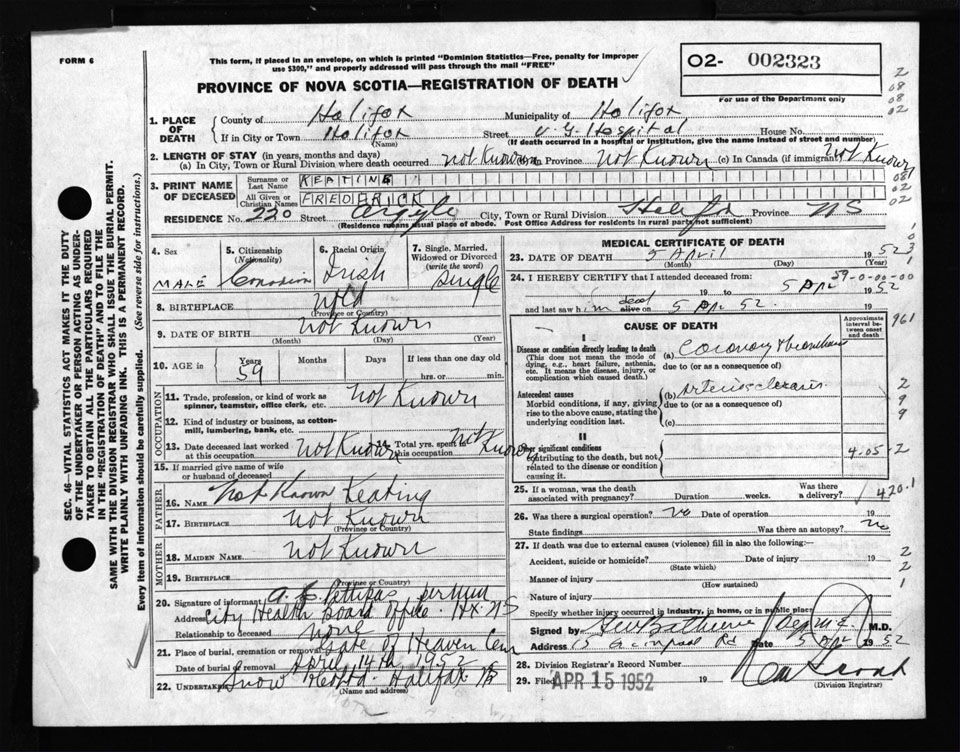 FORM 6
This form, if placed in an envelope, on which is printed "Dominion Statistics—Free, penalty for improper
use $300," and properly addressed will pass through the mail "FREE"
02- 002323
For use of the Department only
PROVINCE OF NOVA SCOTIA—REGISTRATION OF DEATH
1. PLACE OF DEATH
County of Halifax
Municipality of Halifax
If in City or Town Halifax (Name)
Street V. G. Hospital House No.
(If death occurred in a hospital or institution, give name instead of street and number)
2. LENGTH OF STAY (in years, months and days)
(a) In City, Town or Rural Division where death occurred Not Known (b) In Province Not Known (c) In Canada (if immigrant) Not Known
3. PRINT NAME OF DECEASED
Surname or Last Name KEATING
All Given or Christian Names FREDERICK
RESIDENCE No. 220 Street Argyle City, Town or Rural Division Halifax Province NS
(Residence means usual place of abode. Post Office Address for residents in rural parts not sufficient)
4. Sex
MALE
5. Citizenship (Nationality)
Canadian
6. Racial Origin
Irish
7. Single, Married, Widowed or Divorced (write the word)
Single
8. BIRTHPLACE Nfld
(Province or Country)
9. DATE OF BIRTH Not Known
(Month) (Day) (Year)
10. AGE in
Years 59
Months
Days
If less than one day old
hrs. or min.
OCCUPATION
11. Trade, profession, or kind of work as spinner, teamster, office clerk, etc. Not Known
12. Kind of industry or business, as cotton-mill, lumbering, bank, etc.
13. Date deceased last worked at this occupation Not Known
14. Total yrs. spent in this occupation Not Known
15. If married give name of wife or husband of deceased
FATHER
16. NAME Not Known Keating
17. BIRTHPLACE Not Known
(Province or Country)
MOTHER
18. MAIDEN NAME Not Known
19. BIRTHPLACE
(Province or Country)
20. Signature of informant
Address City Health Board Office. Hx. NS
Relationship to deceased None
21. Place of burial, cremation or removal Gate of Heaven Cem
Date of burial or removal April 14th 1952
22. UNDERTAKER Snow Halifax NS
(Name and address)
MEDICAL CERTIFICATE OF DEATH
23. DATE OF DEATH 5 April 1952
(Month) (Day) (Year)
24. I HEREBY CERTIFY that I attended deceased from:
59-0-00-00
19 to 5 Apr 1952
and last saw him dead alive on 5 Apr 52.
CAUSE OF DEATH
Approximate interval between onset and death
961
I
Disease or condition directly leading to death
(This does not mean the mode of dying, e.g., heart failure, asthenia, etc. It means the disease, injury, or complication which caused death.)
(a) Coronary thrombosis
due to (or as a consequence of)
Antecedent causes
Morbid conditions, if any, giving rise to the above cause, stating the underlying condition last.
(b) Arteriosclerosis
due to (or as a consequence of)
(c)
II
Other significant conditions
contributing to the death, but not related to the disease or condition causing it.
4-05-2
25. If a woman, was the death associated with pregnancy? Duration weeks. Was there a delivery?
420.1
26. Was there a surgical operation? No Date of operation 19
State findings Was there an autopsy? No
27. If death was due to external causes (violence) fill in also the following:—
Accident, suicide or homicide? Date of injury 19
(State which)
Manner of injury
(How sustained)
Nature of injury
Specify whether injury occurred in industry, in home, or in public place
Signed by M.D.
Address Rd Date 5 Apr 1952
28. Division Registrar's Record Number
29. Filed APR 15 1952 19
(Division Registrar)
SEC. 46—VITAL STATISTICS ACT MAKES IT THE DUTY
OF THE UNDERTAKER OR PERSON ACTING AS UNDER-
TAKER TO OBTAIN ALL THE PARTICULARS REQUIRED
IN THE "REGISTRATION OF DEATH" AND TO FILE THE
SAME WITH THE DIVISION REGISTRAR WHO SHALL ISSUE THE BURIAL PERMIT.
WRITE PLAINLY WITH UNFADING INK. THIS IS A PERMANENT RECORD.
Every item of information should be carefully supplied. (See reverse side for instructions.)